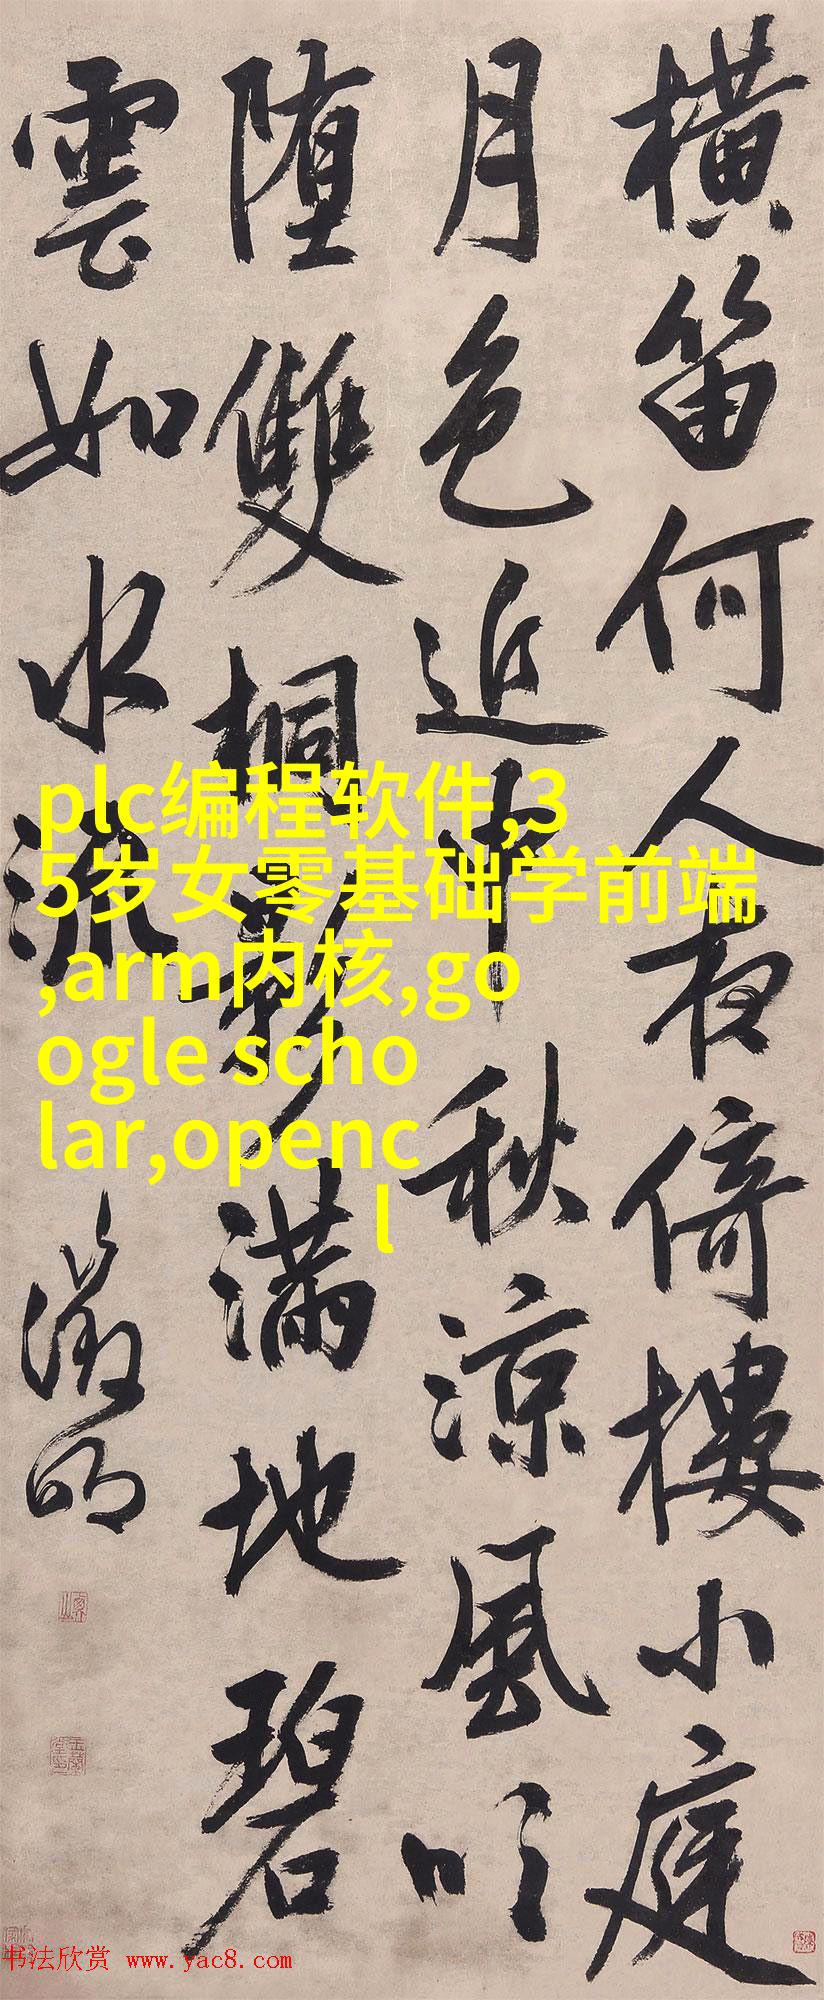 橫笛何人夜倚樓小庭
月色近中秋涼風吹
堕雙桐影满地碧
雲如水流
徵明
plc编程软件,3
5岁女零基础学前端
,arm内核,go
ogle scho
lar,openc
l
书法欣赏 www.yac8.com